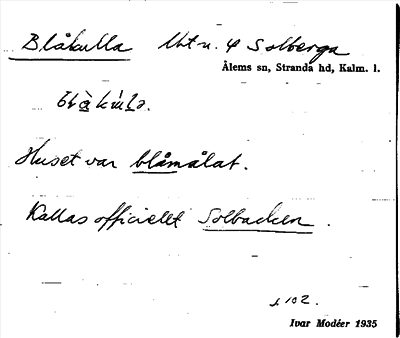 Blåkulla Lht u. 4 Solberga
Ålems sn, Stranda hd, Kalm. l.
Huset var blåmålat.
Kallas officiellt Solbacken.
s. 102.
Ivar Modéer 1935